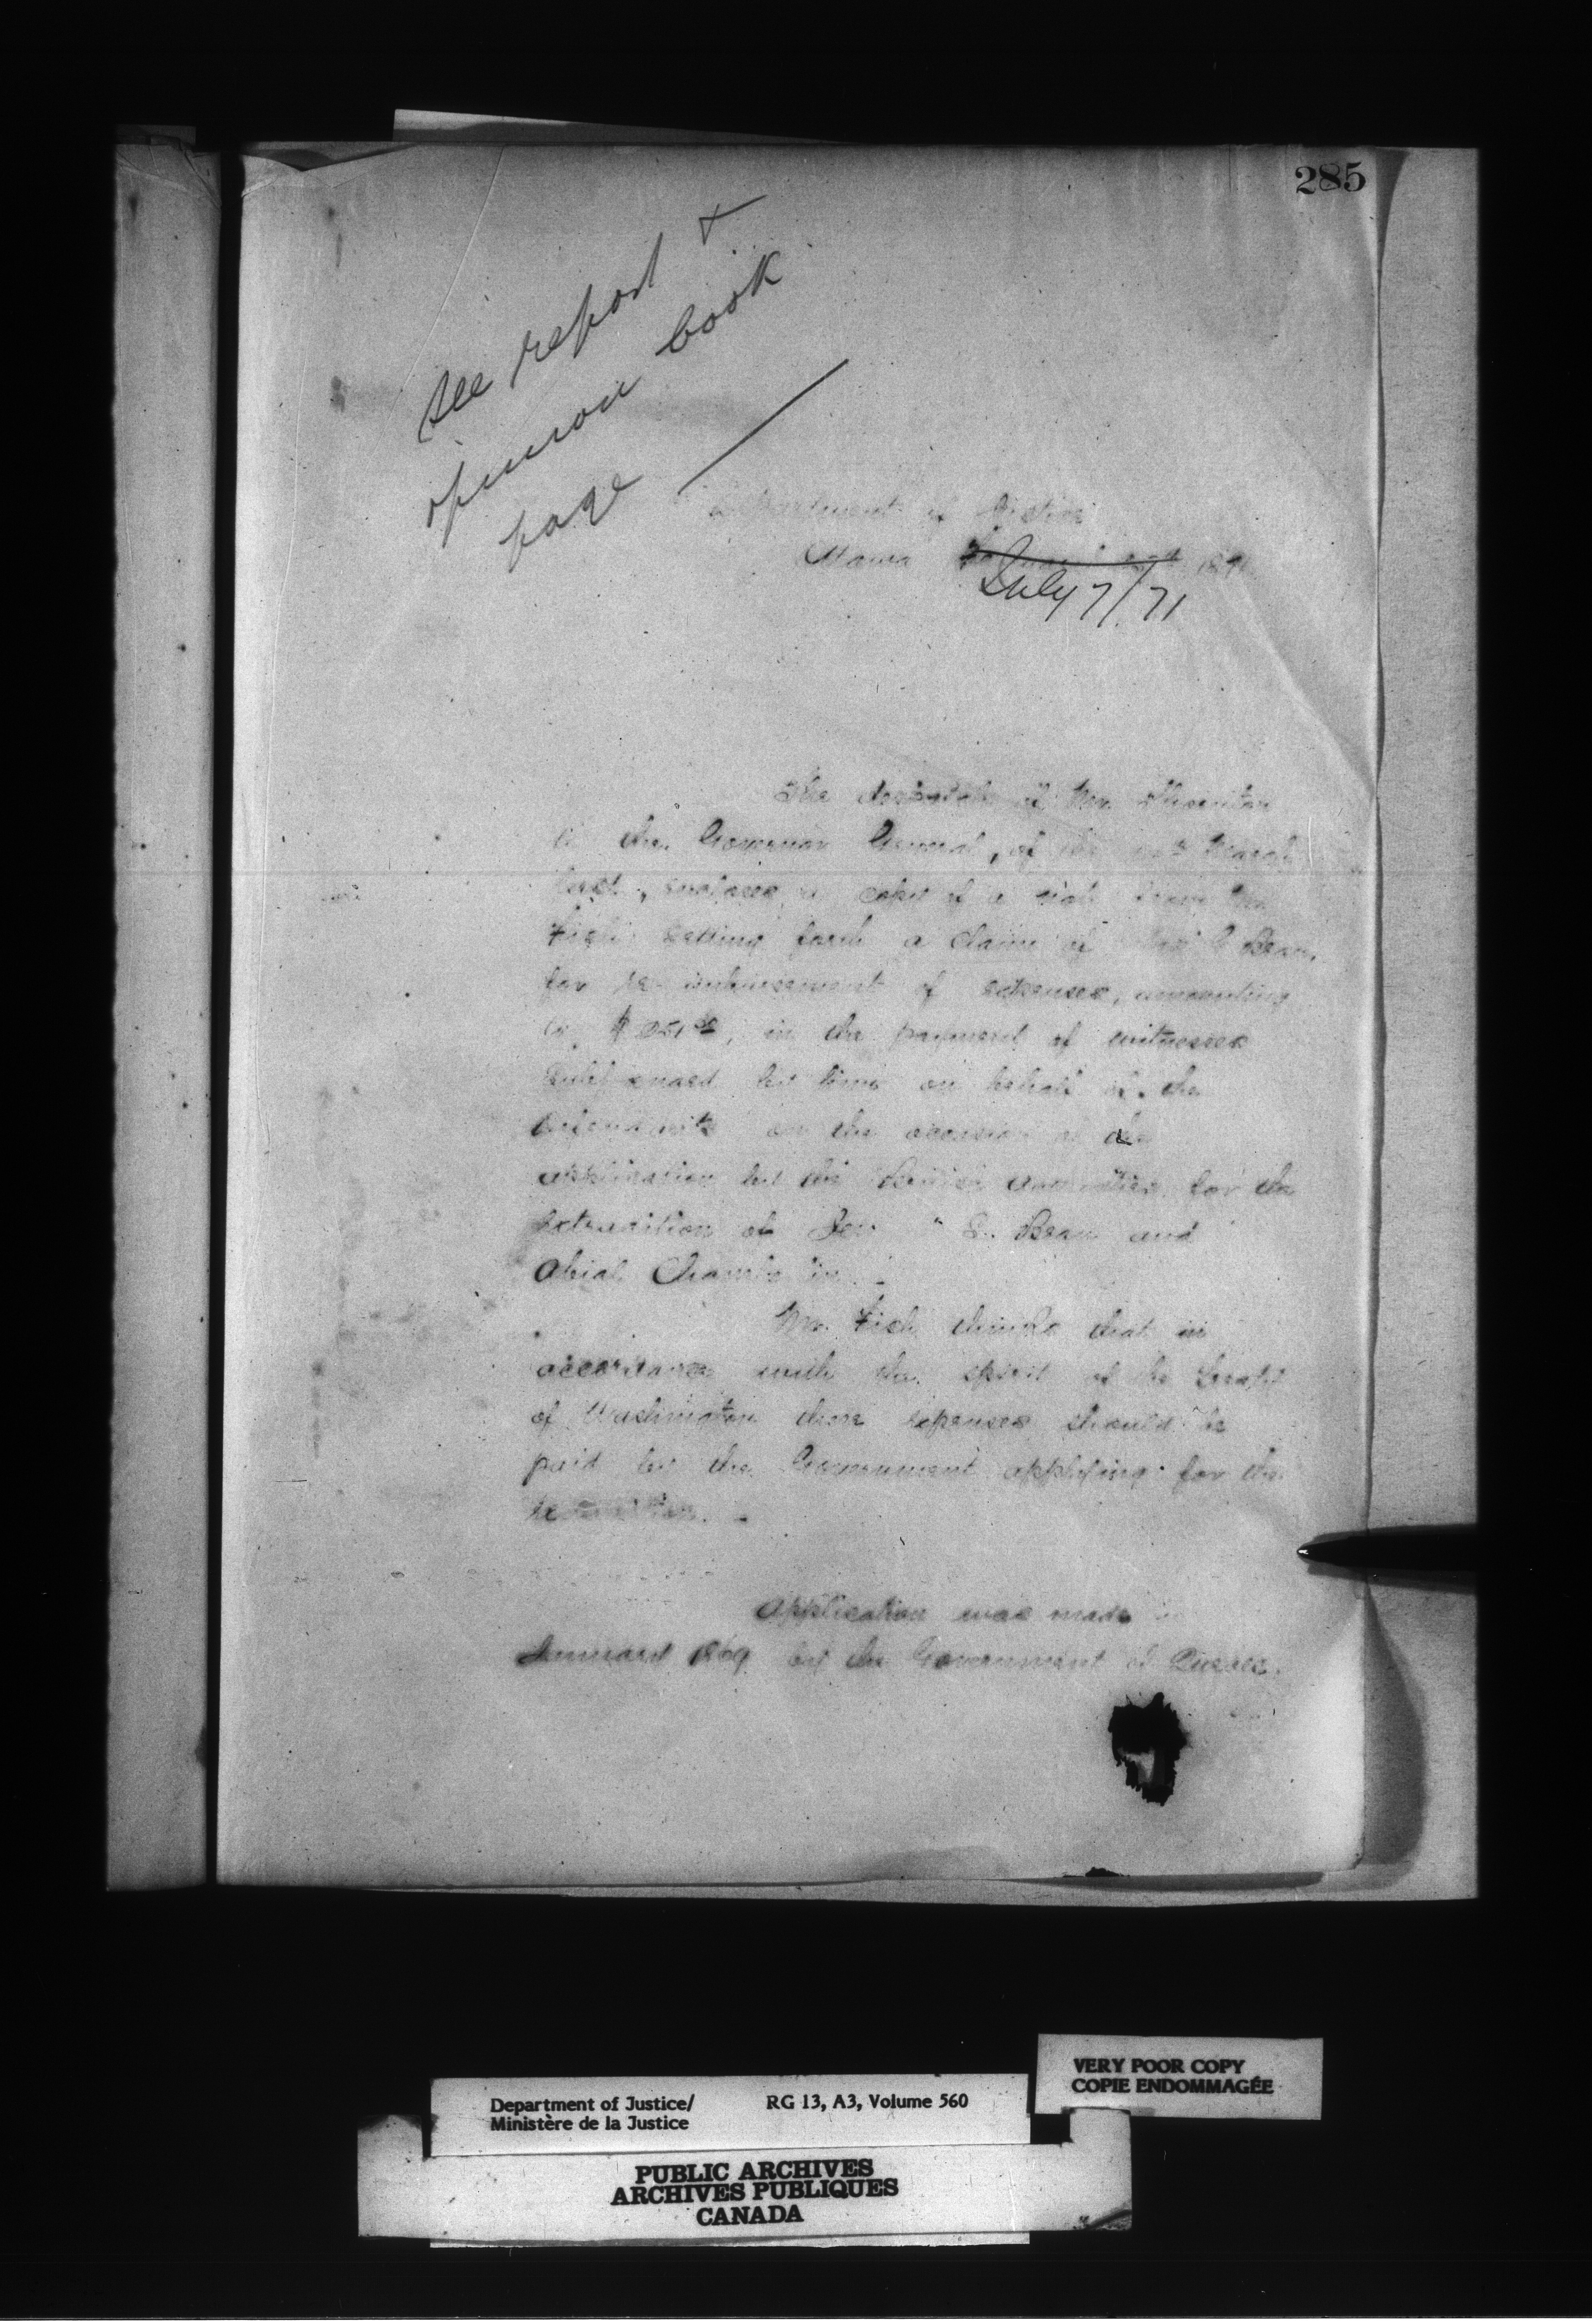 285
See report &
opinion book
page
Department of Justice
Ottawa 187
July 7/71
The despatch of Mr. Thornton
to the Governor General, of the March
last, encloses a copy of a note from Mr
Fish setting forth a claim of Bean,
for re-imbursement of expenses, amounting
to $ in the payment of witnesses
subpoenaed by him on behalf of the
defendants on the occasion of the
application by the British authorities for the
extradition of S. Bean and
Abial
Mr. Fish thinks that in
accordance with the spirit of the Treaty
of Washington these expenses should be
paid by the Government applying for the
Application was made in
January 1869 by the Government of Quebec.
VERY POOR COPY
COPIE ENDOMMAGÉE
Department of Justice/ RG 13, A3, Volume 560
Ministère de la Justice
PUBLIC ARCHIVES
ARCHIVES PUBLIQUES
CANADA